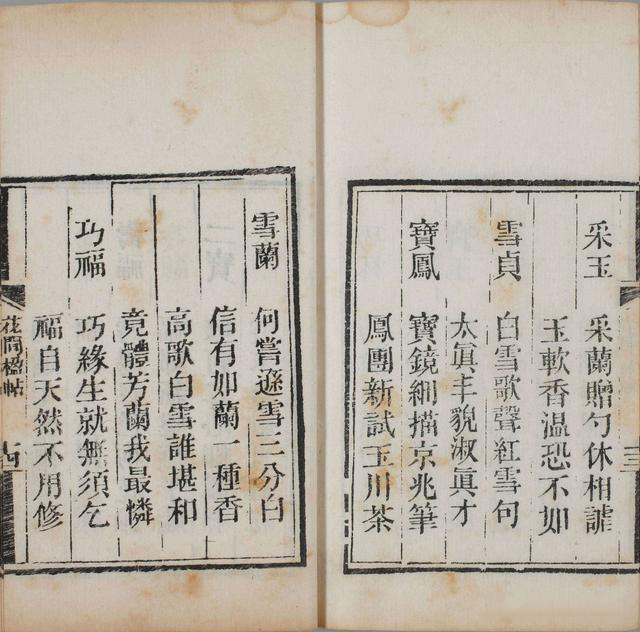 采玉 采蘭贈勺休相謔
玉軟香溫恐不如
雪貞 白雪歌聲紅雪句
太眞丰貌淑眞才
寶鳳 寶鏡細描京兆筆
鳳團新試玉川茶
雪蘭 何嘗遜雪三分白
信有如蘭一種香
高歌白雪誰堪和
竟體芳蘭我最憐
巧福 巧緣生就無須乞
福自天然不用修
花間楹帖